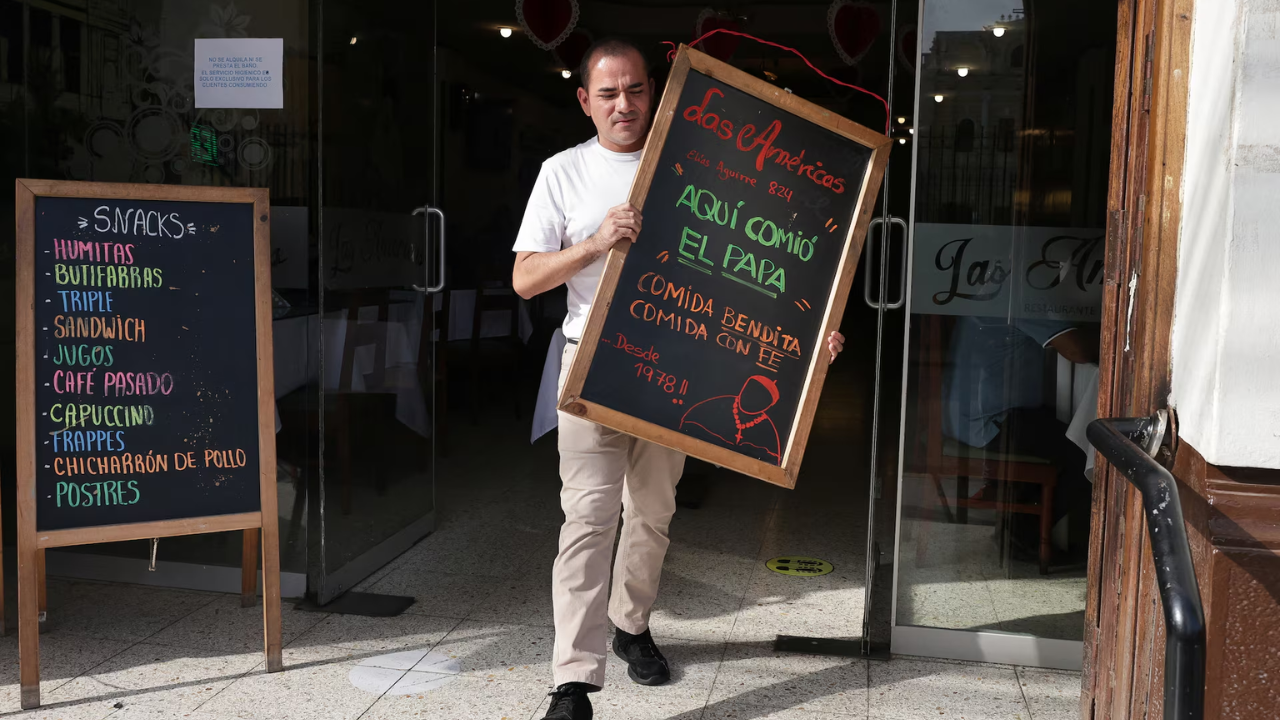 NO SE ALQUILA NI SE
PRESTA EL BAÑO.
EL SERVICIO HIGIENICO ES
SOLO EXCLUSIVO PARA LOS
CLIENTES CONSUMIENDO
SNACKS
- HUMITAS
- BUTIFABRAS
- TRIPLE
- SANDWICH
- JUGOS
- CAFÉ PASADO
- CAPUCCINO
- TRAPPES
- CHICHARRÓN DE POLLO
- POSTRES
Las Américas
Elías Aguirre 824
AQUÍ COMIÓ
EL PAPA
COMIDA BENDITA
COMIDA CON FE
... Desde
1978!!
Las Am
RESTAURANTE